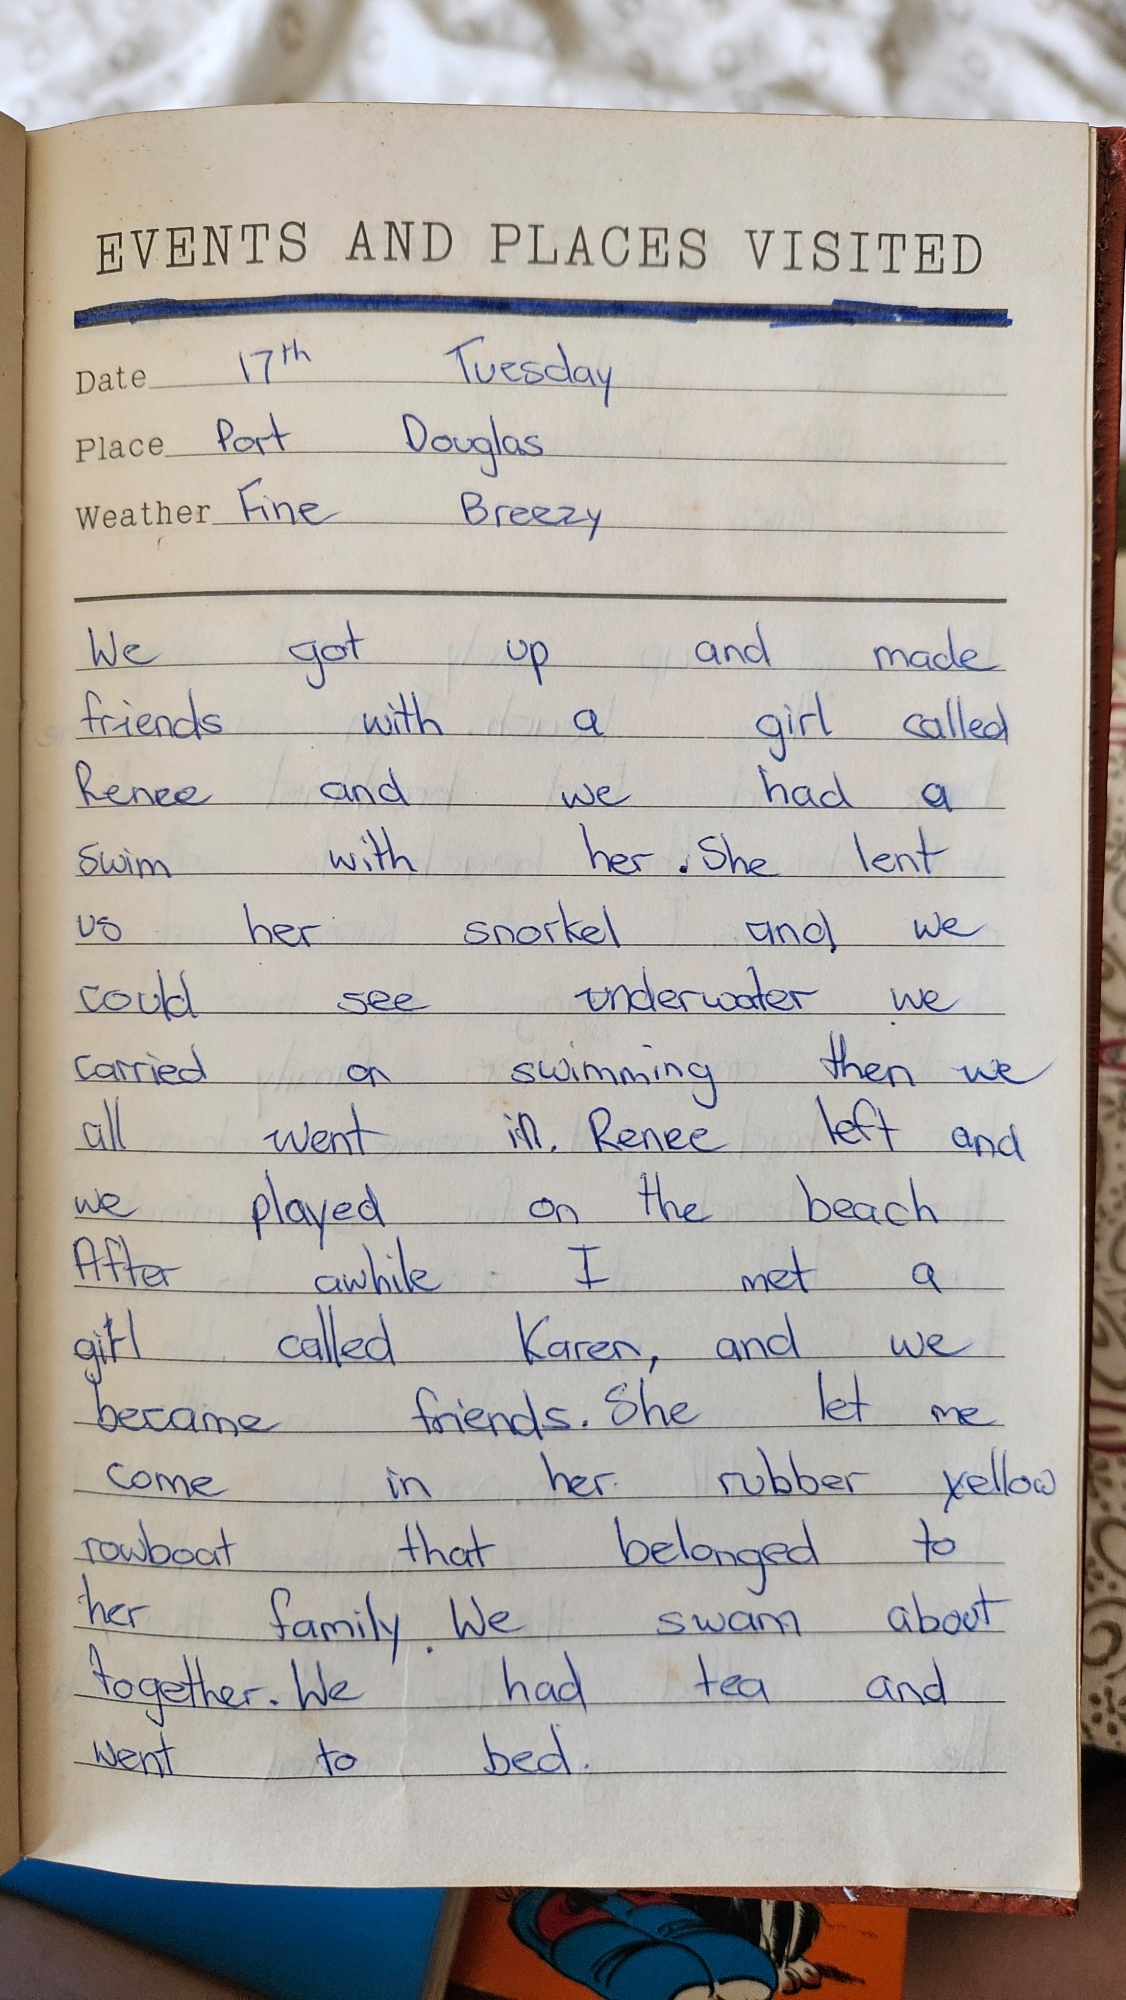 EVENTS AND PLACES VISITED
Date 17th Tuesday
Place Port Douglas
Weather Fine Breezy
We got up and made
friends with a girl called
Renee and we had a
swim with her. She lent
us her snorkel and we
could see underwater we
carried on swimming then we
all went in. Renee left and
we played on the beach
After awhile I met a
girl called Karen, and we
became friends. She let me
come in her rubber yellow
rowboat that belonged to
her family. We swam about
together. We had tea and
went to bed.